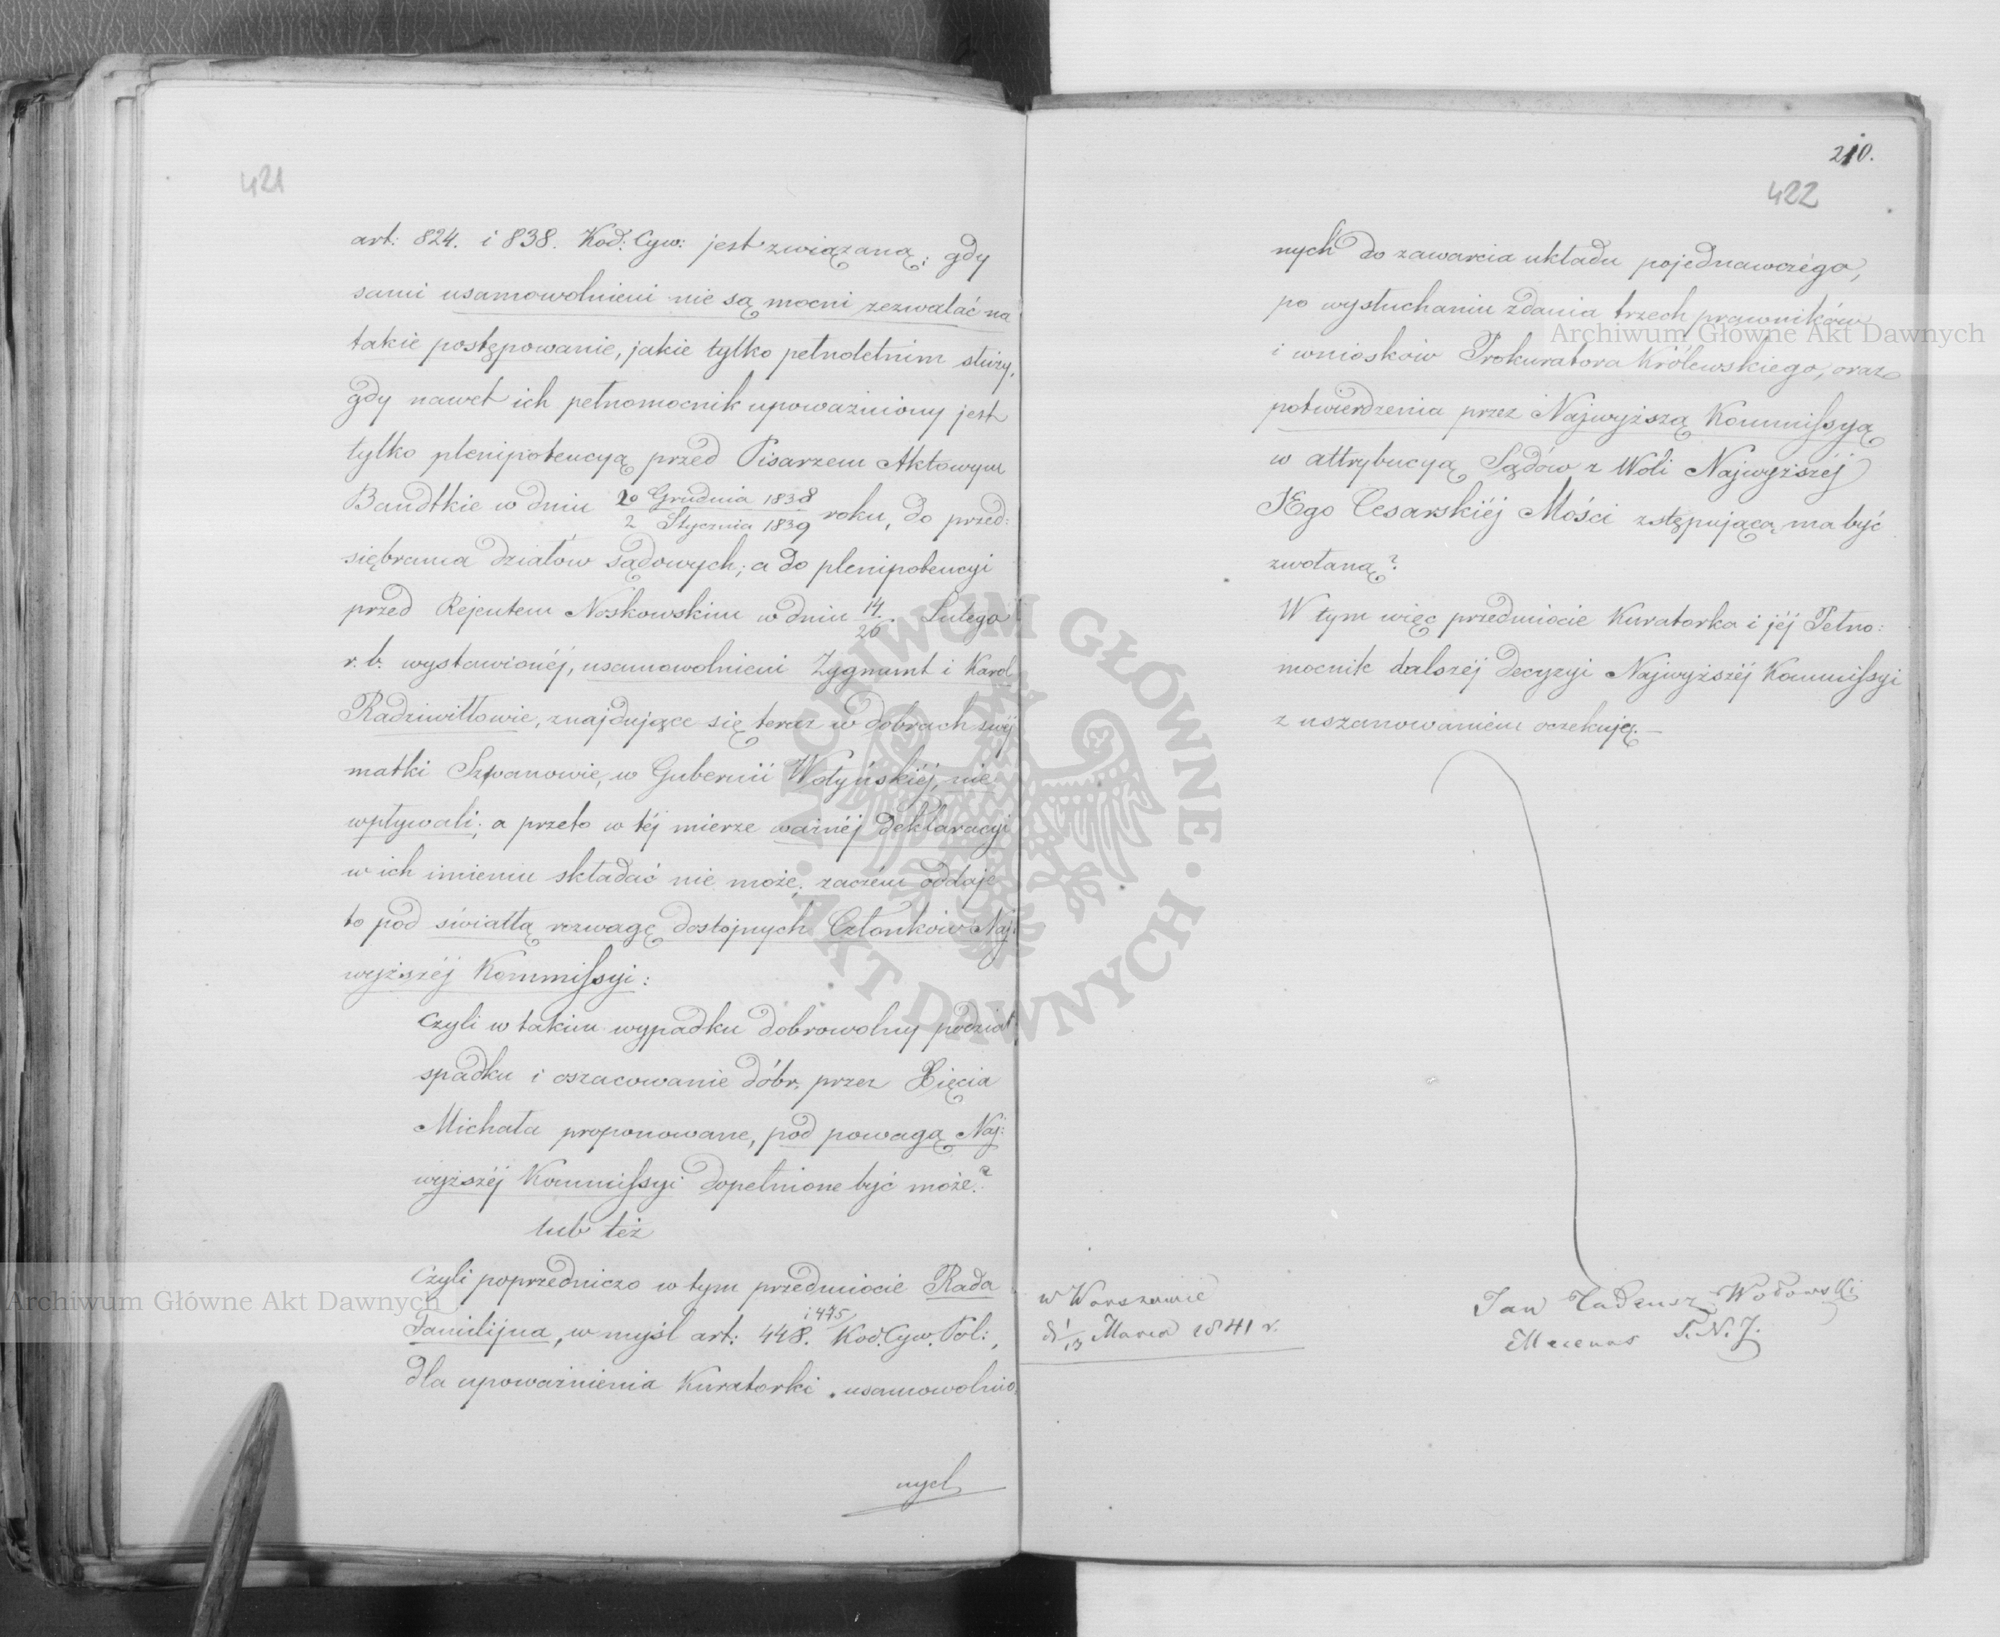 421
art: 824. i 838. Kod: Cyw: jest związaną; gdy
sami usamowolnieni nie są mocni zezwalać na
takie postępowanie, jakie tylko pełnoletnim służy,
gdy nawet ich pełnomocnik upoważniony jest
tylko plenipotencyą przed Pisarzem Aktowym
Bandtkie w dniu 20 Grudnia 1838 / 2 Stycznia 1839 roku, do przed:
siębrania działów sądowych; a do plenipotencyi
przed Rejentem Noskowskim w dniu 14/26. Lutego
r. b. wystawionéj, usamowolnieni Zygmunt i Karol
Radziwiłłowie, znajdujące się teraz w dobrach swéj
matki Szpanowie, w Gubernii Wołyńskiéj, nie
wpływali; a przeto w téj mierze ważnéj deklaracyi
w ich imieniu składać nie może; zaczém oddaje
to pod światłą rozwagę dostojnych Członków Naj:
wyższéj Kommissyi:
Czyli w takim wypadku dobrowolny podział
spadku i oszacowanie dóbr, przez Xięcia
Michała proponowane, pod powagą Naj:
wyższéj Kommissyi dopełnione być może?
lub też
Czyli poprzedniczo w tym przedmiocie Rada
Familijna, w myśl art: 448. i 475 Kod. Cyw. Pol:,
dla upoważnienia Kuratorki usamowolnio:
nych
210.
422
nych do zawarcia układu pojednawczégo,
po wysłuchaniu zdania trzech prawników
i wniosków Prokuratora Królewskiego, oraz
potwierdzenia przez Najwyższą Kommissyą
w attrybucyą Sądów z Woli Najwyższéj
JEgo Cesarskiéj Mości zstępującą, ma być
zwołaną?
W tym więc przedmiocie Kuratorka i jéj Pełno:
mocnik dalszéj decyzyi Najwyższéj Kommissyi
z uszanowaniem oczekuję. —
w Warszawie
d. 1/13 Marca 1841 r.
Jan Tadeusz Wołowski
Mecenas P. N. J.
Archiwum Główne Akt Dawnych
Archiwum Główne Akt Dawnych
ARCHIWUM GŁÓWNE · AKT DAWNYCH ·